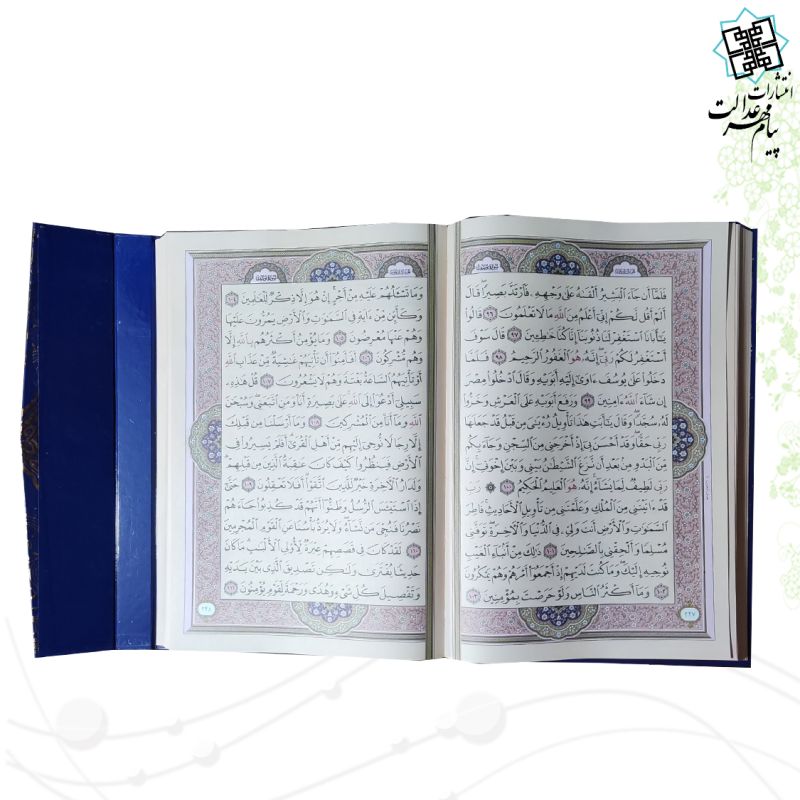 انتشارات
پیام مهر عدالت
فَلَمَّآ أَن جَآءَ ٱلْبَشِيرُ أَلْقَىٰهُ عَلَىٰ وَجْهِهِۦ فَٱرْتَدَّ بَصِيرًا قَالَ
أَلَمْ أَقُل لَّكُمْ إِنِّىٓ أَعْلَمُ مِنَ ٱللَّهِ مَا لَا تَعْلَمُونَ ٩٦ قَالُوا۟
يَٰٓأَبَانَا ٱسْتَغْفِرْ لَنَا ذُنُوبَنَآ إِنَّا كُنَّا خَٰطِـِٔينَ ٩٧ قَالَ سَوْفَ
أَسْتَغْفِرُ لَكُمْ رَبِّىٓ إِنَّهُۥ هُوَ ٱلْغَفُورُ ٱلرَّحِيمُ ٩٨ فَلَمَّا
دَخَلُوا۟ عَلَىٰ يُوسُفَ ءَاوَىٰٓ إِلَيْهِ أَبَوَيْهِ وَقَالَ ٱدْخُلُوا۟ مِصْرَ
إِن شَآءَ ٱللَّهُ ءَامِنِينَ ٩٩ وَرَفَعَ أَبَوَيْهِ عَلَى ٱلْعَرْشِ وَخَرُّوا۟
لَهُۥ سُجَّدًا وَقَالَ يَٰٓأَبَتِ هَٰذَا تَأْوِيلُ رُءْيَٰىَ مِن قَبْلُ قَدْ جَعَلَهَا
رَبِّى حَقًّا وَقَدْ أَحْسَنَ بِىٓ إِذْ أَخْرَجَنِى مِنَ ٱلسِّجْنِ وَجَآءَ بِكُم
مِّنَ ٱلْبَدْوِ مِنۢ بَعْدِ أَن نَّزَغَ ٱلشَّيْطَٰنُ بَيْنِى وَبَيْنَ إِخْوَتِىٓ إِنَّ
رَبِّى لَطِيفٌ لِّمَا يَشَآءُ إِنَّهُۥ هُوَ ٱلْعَلِيمُ ٱلْحَكِيمُ ١٠٠ رَبِّ
قَدْ ءَاتَيْتَنِى مِنَ ٱلْمُلْكِ وَعَلَّمْتَنِى مِن تَأْوِيلِ ٱلْأَحَادِيثِ فَاطِرَ
ٱلسَّمَٰوَٰتِ وَٱلْأَرْضِ أَنتَ وَلِىِّۦ فِى ٱلدُّنْيَا وَٱلْءَاخِرَةِ تَوَفَّنِى
مُسْلِمًا وَأَلْحِقْنِى بِٱلصَّٰلِحِينَ ١٠١ ذَٰلِكَ مِنْ أَنۢبَآءِ ٱلْغَيْبِ
نُوحِيهِ إِلَيْكَ وَمَا كُنتَ لَدَيْهِمْ إِذْ أَجْمَعُوٓا۟ أَمْرَهُمْ وَهُمْ يَمْكُرُونَ
١٠٢ وَمَآ أَكْثَرُ ٱلنَّاسِ وَلَوْ حَرَصْتَ بِمُؤْمِنِينَ ١٠٣
٢٤٧
وَمَا تَسْـَٔلُهُمْ عَلَيْهِ مِنْ أَجْرٍ إِنْ هُوَ إِلَّا ذِكْرٌ لِّلْعَٰلَمِينَ ١٠٤
وَكَأَيِّن مِّنْ ءَايَةٍ فِى ٱلسَّمَٰوَٰتِ وَٱلْأَرْضِ يَمُرُّونَ عَلَيْهَا
وَهُمْ عَنْهَا مُعْرِضُونَ ١٠٥ وَمَا يُؤْمِنُ أَكْثَرُهُم بِٱللَّهِ إِلَّا
وَهُم مُّشْرِكُونَ ١٠٦ أَفَأَمِنُوٓا۟ أَن تَأْتِيَهُمْ غَٰشِيَةٌ مِّنْ عَذَابِ ٱللَّهِ
أَوْ تَأْتِيَهُمُ ٱلسَّاعَةُ بَغْتَةً وَهُمْ لَا يَشْعُرُونَ ١٠٧ قُلْ هَٰذِهِۦ
سَبِيلِىٓ أَدْعُوٓا۟ إِلَى ٱللَّهِ عَلَىٰ بَصِيرَةٍ أَنَا۠ وَمَنِ ٱتَّبَعَنِى وَسُبْحَٰنَ
ٱللَّهِ وَمَآ أَنَا۠ مِنَ ٱلْمُشْرِكِينَ ١٠٨ وَمَآ أَرْسَلْنَا مِن قَبْلِكَ
إِلَّا رِجَالًا نُّوحِىٓ إِلَيْهِم مِّنْ أَهْلِ ٱلْقُرَىٰٓ أَفَلَمْ يَسِيرُوا۟ فِى
ٱلْأَرْضِ فَيَنظُرُوا۟ كَيْفَ كَانَ عَٰقِبَةُ ٱلَّذِينَ مِن قَبْلِهِمْ
وَلَدَارُ ٱلْءَاخِرَةِ خَيْرٌ لِّلَّذِينَ ٱتَّقَوْا۟ أَفَلَا تَعْقِلُونَ ١٠٩ حَتَّىٰٓ
إِذَا ٱسْتَيْـَٔسَ ٱلرُّسُلُ وَظَنُّوٓا۟ أَنَّهُمْ قَدْ كُذِبُوا۟ جَآءَهُمْ
نَصْرُنَا فَنُجِّىَ مَن نَّشَآءُ وَلَا يُرَدُّ بَأْسُنَا عَنِ ٱلْقَوْمِ ٱلْمُجْرِمِينَ
١١٠ لَقَدْ كَانَ فِى قَصَصِهِمْ عِبْرَةٌ لِّأُو۟لِى ٱلْأَلْبَٰبِ مَا كَانَ
حَدِيثًا يُفْتَرَىٰ وَلَٰكِن تَصْدِيقَ ٱلَّذِى بَيْنَ يَدَيْهِ
وَتَفْصِيلَ كُلِّ شَىْءٍ وَهُدًى وَرَحْمَةً لِّقَوْمٍ يُؤْمِنُونَ ١١١
٢٤٨